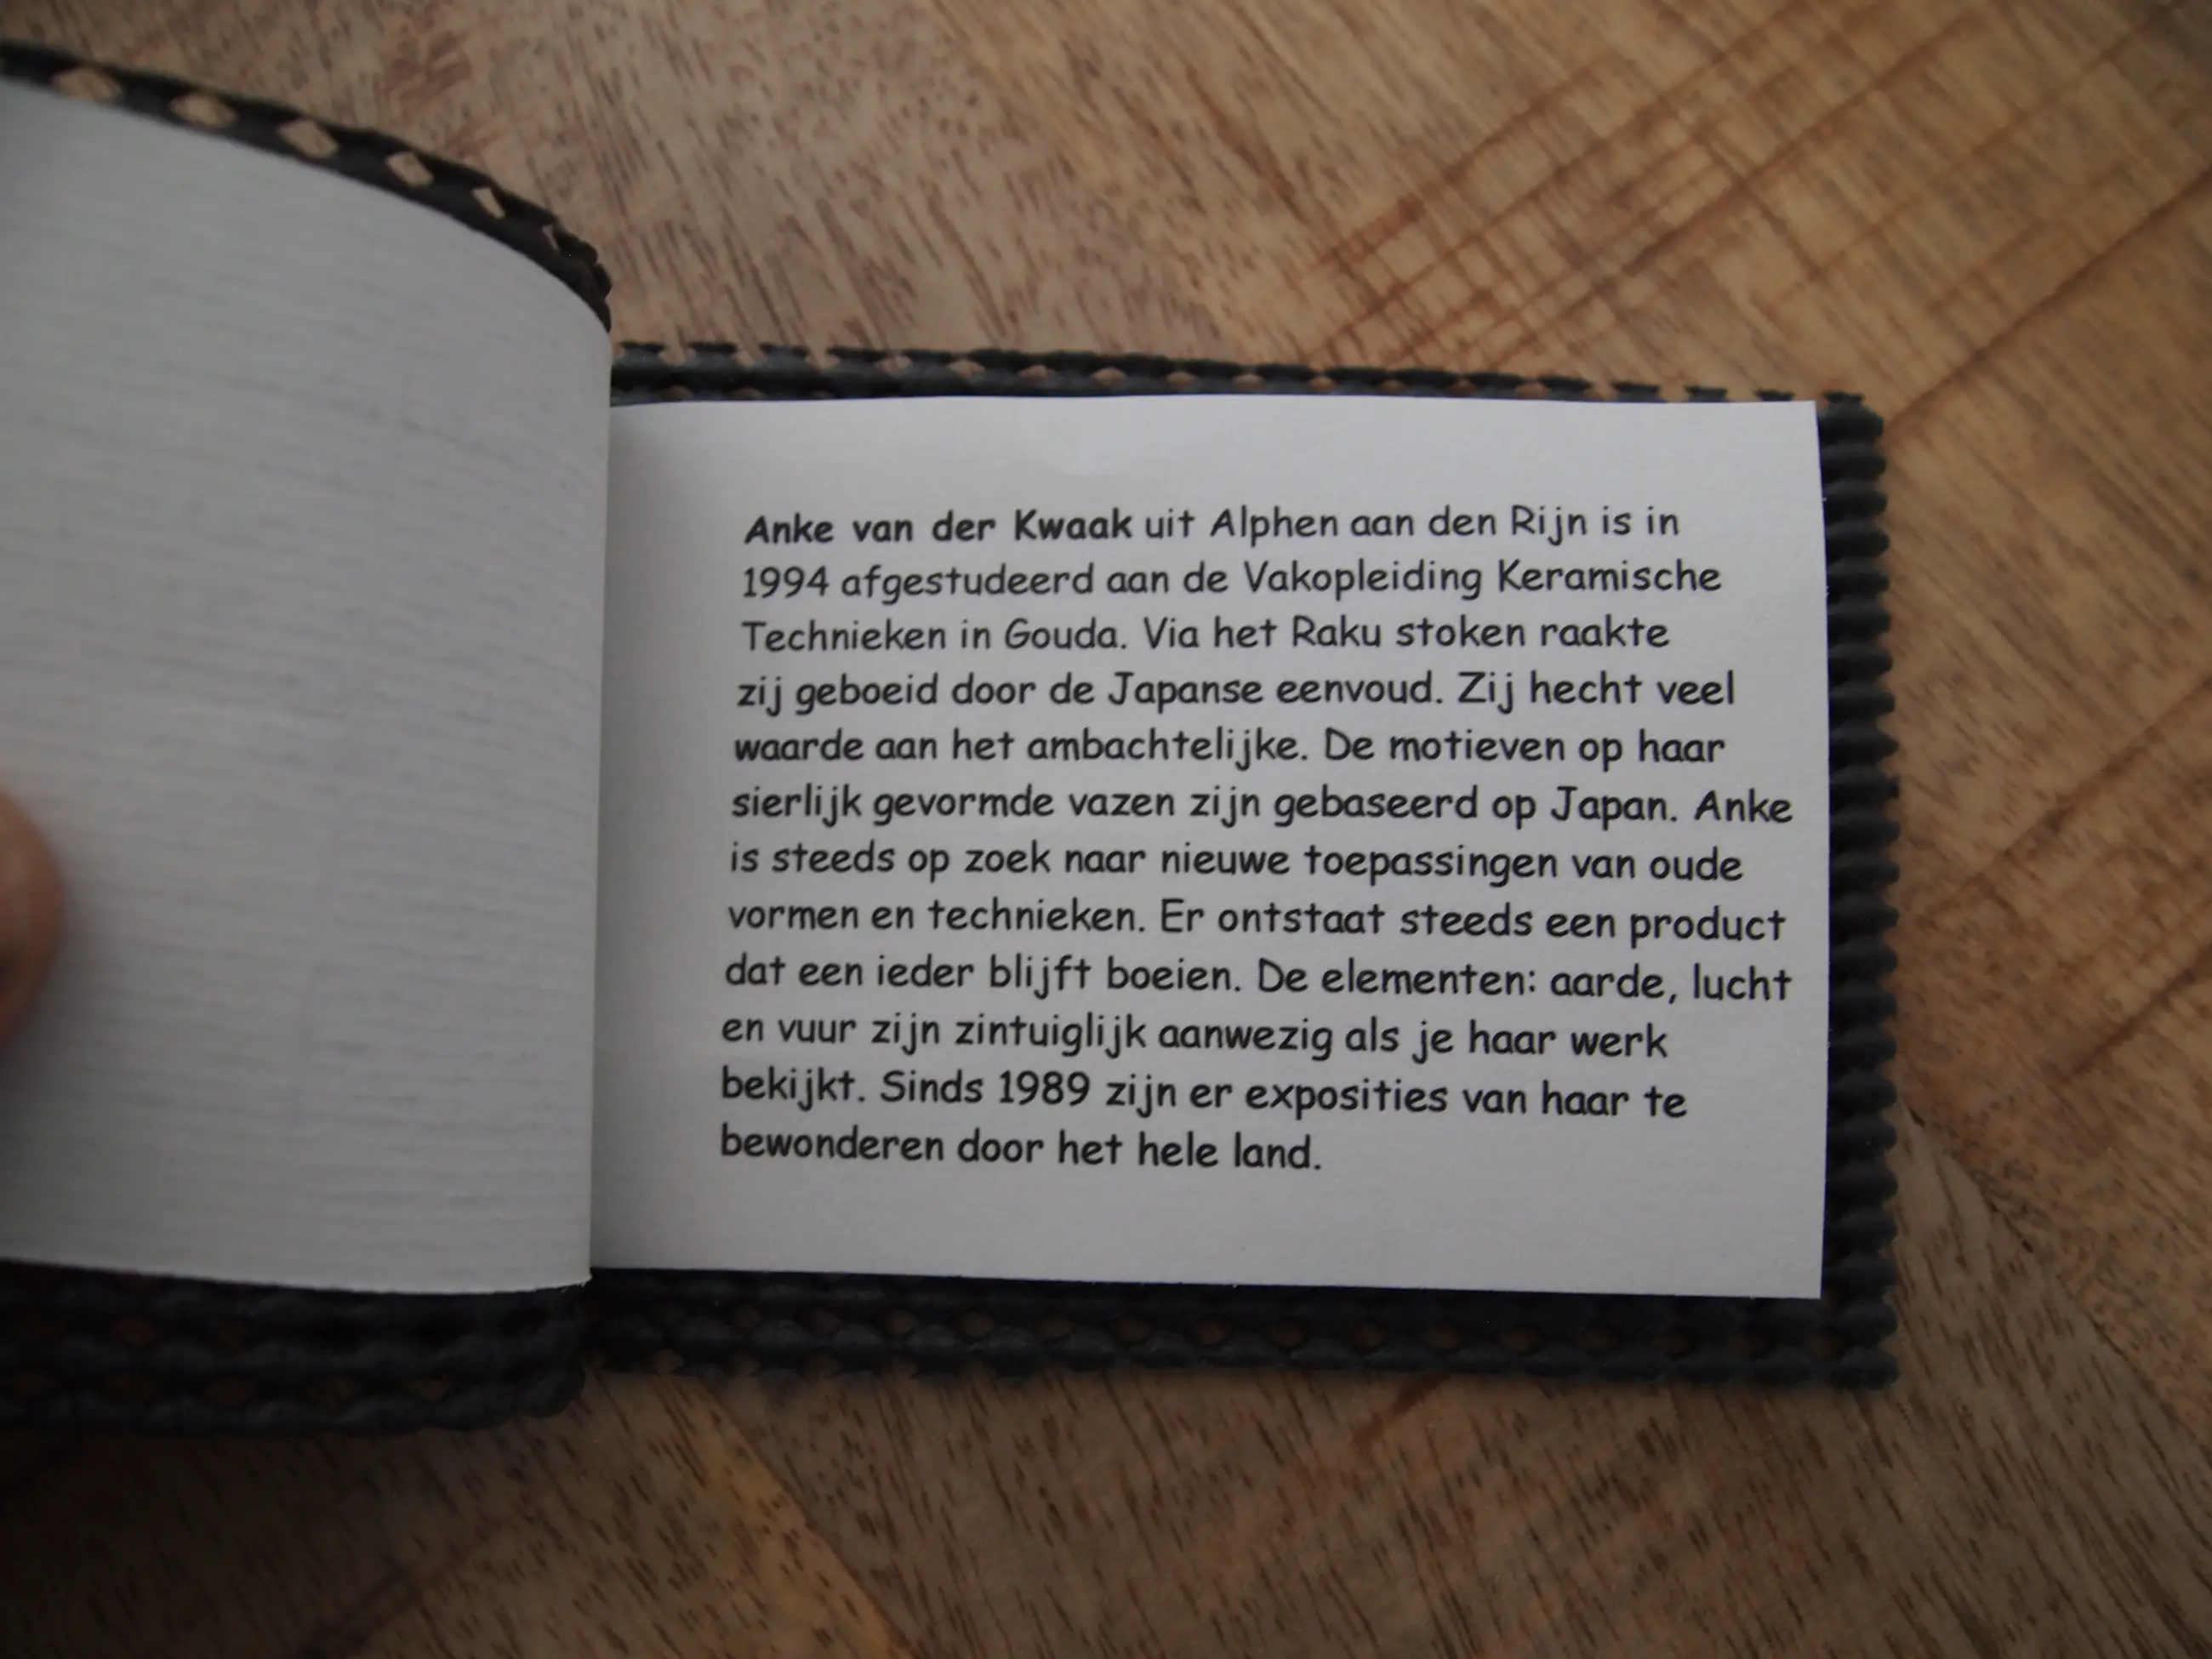 Anke van der Kwaak uit Alphen aan den Rijn is in
1994 afgestudeerd aan de Vakopleiding Keramische
Technieken in Gouda. Via het Raku stoken raakte
zij geboeid door de Japanse eenvoud. Zij hecht veel
waarde aan het ambachtelijke. De motieven op haar
sierlijk gevormde vazen zijn gebaseerd op Japan. Anke
is steeds op zoek naar nieuwe toepassingen van oude
vormen en technieken. Er ontstaat steeds een product
dat een ieder blijft boeien. De elementen: aarde, lucht
en vuur zijn zintuiglijk aanwezig als je haar werk
bekijkt. Sinds 1989 zijn er exposities van haar te
bewonderen door het hele land.